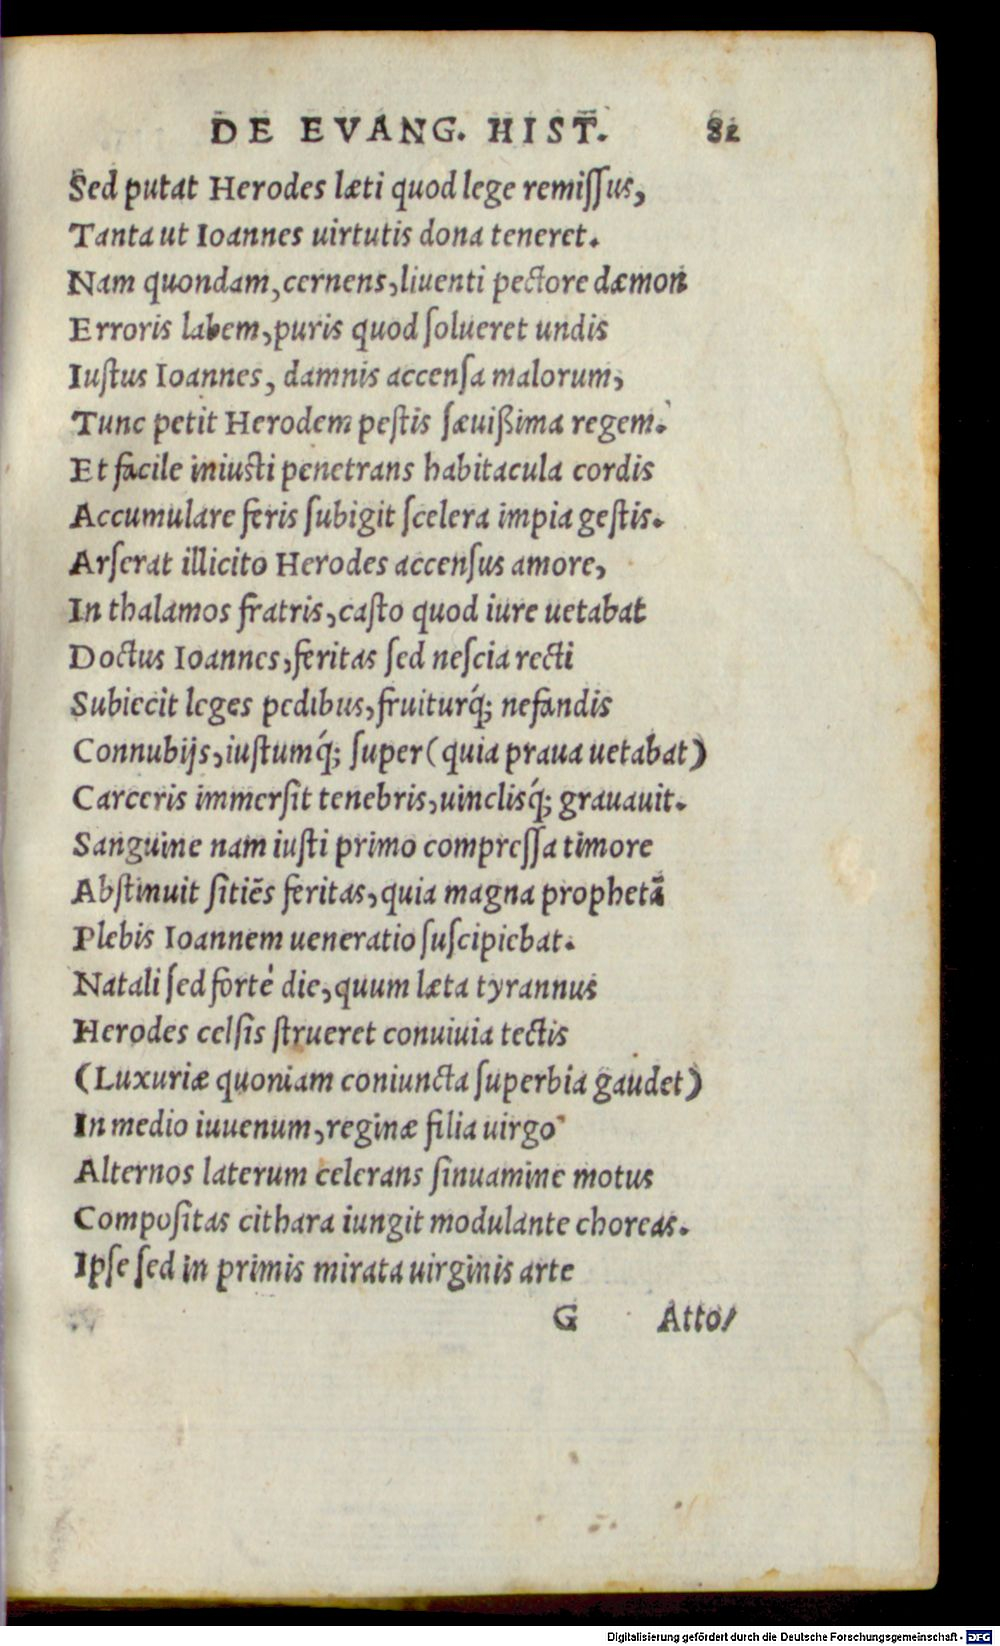 DE EVANG. HIST. 82
Sed putat Herodes læti quod lege remiſſus,
Tanta ut Ioannes uirtutis dona teneret.
Nam quondam, cernens, liuenti pectore dæmon
Erroris labem, puris quod ſolueret undis
Iuſtus Ioannes, damnis accenſa malorum,
Tunc petit Herodem peſtis ſæuißima regem.
Et facile iniusti penetrans habitacula cordis
Accumulare feris ſubigit ſcelera impia geſtis.
Arſerat illicito Herodes accenſus amore,
In thalamos fratris, caſto quod iure uetabat
Doctus Ioannes, feritas ſed neſcia recti
Subiecit leges pedibus, fruiturq́; nefandis
Connubijs, iuſtumq́; ſuper (quia praua uetabat)
Carceris immerſit tenebris, uinclisq́; grauauit.
Sanguine nam iuſti primo compreſſa timore
Abſtinuit ſitiēs feritas, quia magna prophetā
Plebis Ioannem ueneratio ſuſcipiebat.
Natali ſed fortè die, quum læta tyrannus
Herodes celſis ſtrueret conuiuia tectis
(Luxuriæ quoniam coniuncta ſuperbia gaudet)
In medio iuuenum, reginæ filia uirgo
Alternos laterum celerans ſinuamine motus
Compoſitas cithara iungit modulante choreas.
Ipſe ſed in primis mirata uirginis arte
G Atto/
Digitalisierung gefördert durch die Deutsche Forschungsgemeinschaft - DFG